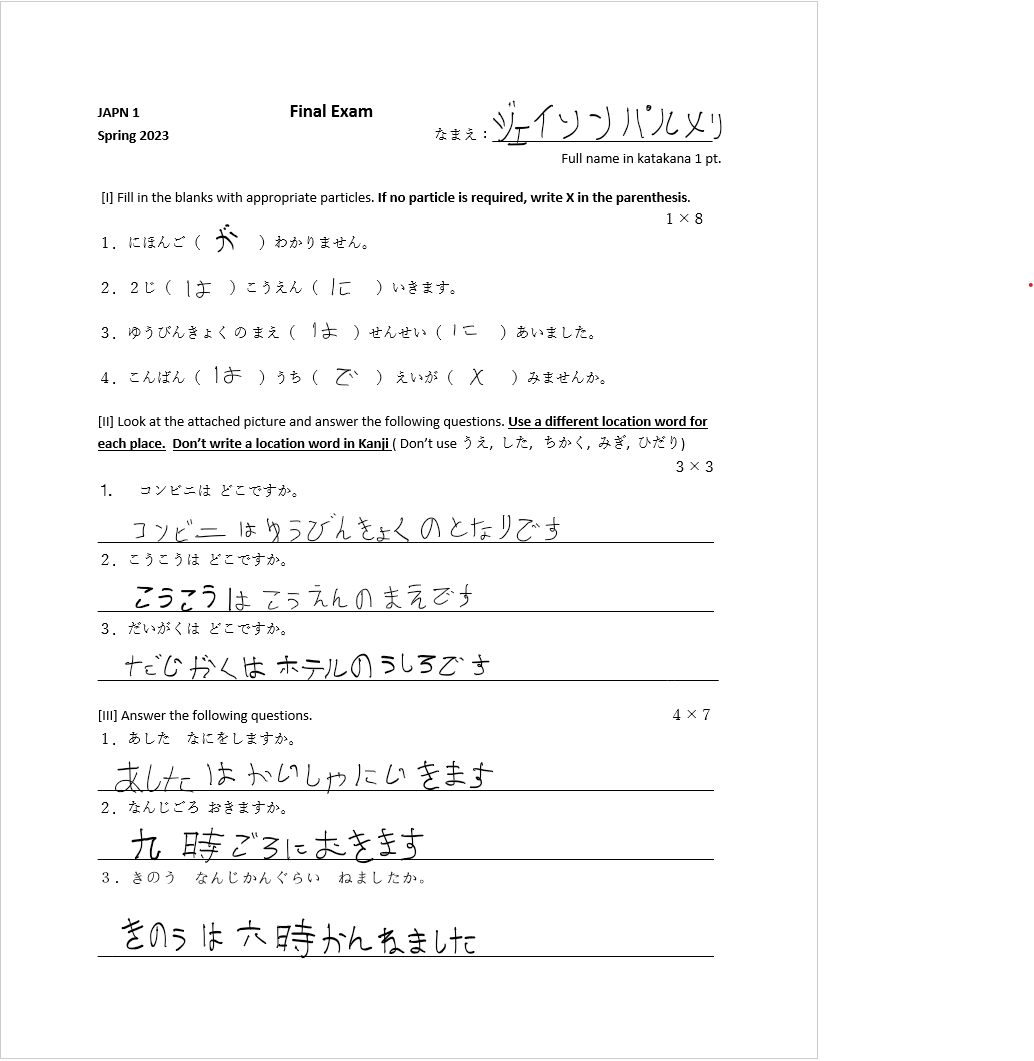 JAPN 1 Final Exam
Spring 2023 なまえ：ジェイソンパルメリ
Full name in katakana 1 pt.
[I] Fill in the blanks with appropriate particles. If no particle is required, write X in the parenthesis.
1 × 8
1. にほんご（ が ）わかりません。
2. 2じ（ は ）こうえん（ に ）いきます。
3. ゆうびんきょくのまえ（ は ）せんせい（ に ）あいました。
4. こんばん（ は ）うち（ で ）えいが（ X ）みませんか。
[II] Look at the attached picture and answer the following questions. Use a different location word for
each place. Don’t write a location word in Kanji ( Don’t use うえ, した, ちかく, みぎ, ひだり)
3 × 3
1. コンビニは どこですか。
コンビニはゆうびんきょくのとなりです
2. こうこうは どこですか。
こうこうはこうえんのまえです
3. だいがくは どこですか。
だじがくはホテルのうしろです
[III] Answer the following questions. 4 × 7
1. あした なにをしますか。
あしたはかいしゃにいきます
2. なんじごろ おきますか。
九時ごろにおきます
3. きのう なんじかんぐらい ねましたか。
きのうは六時かんねました